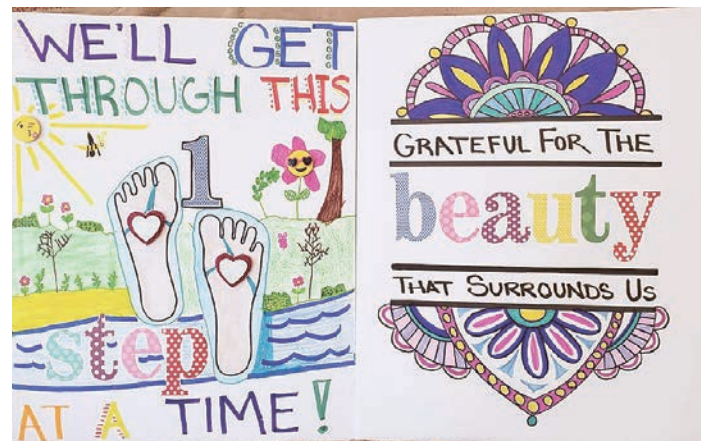 WE'LL GET
THROUGH THIS
1
step
AT A TIME!
GRATEFUL FOR THE
beauty
THAT SURROUNDS US